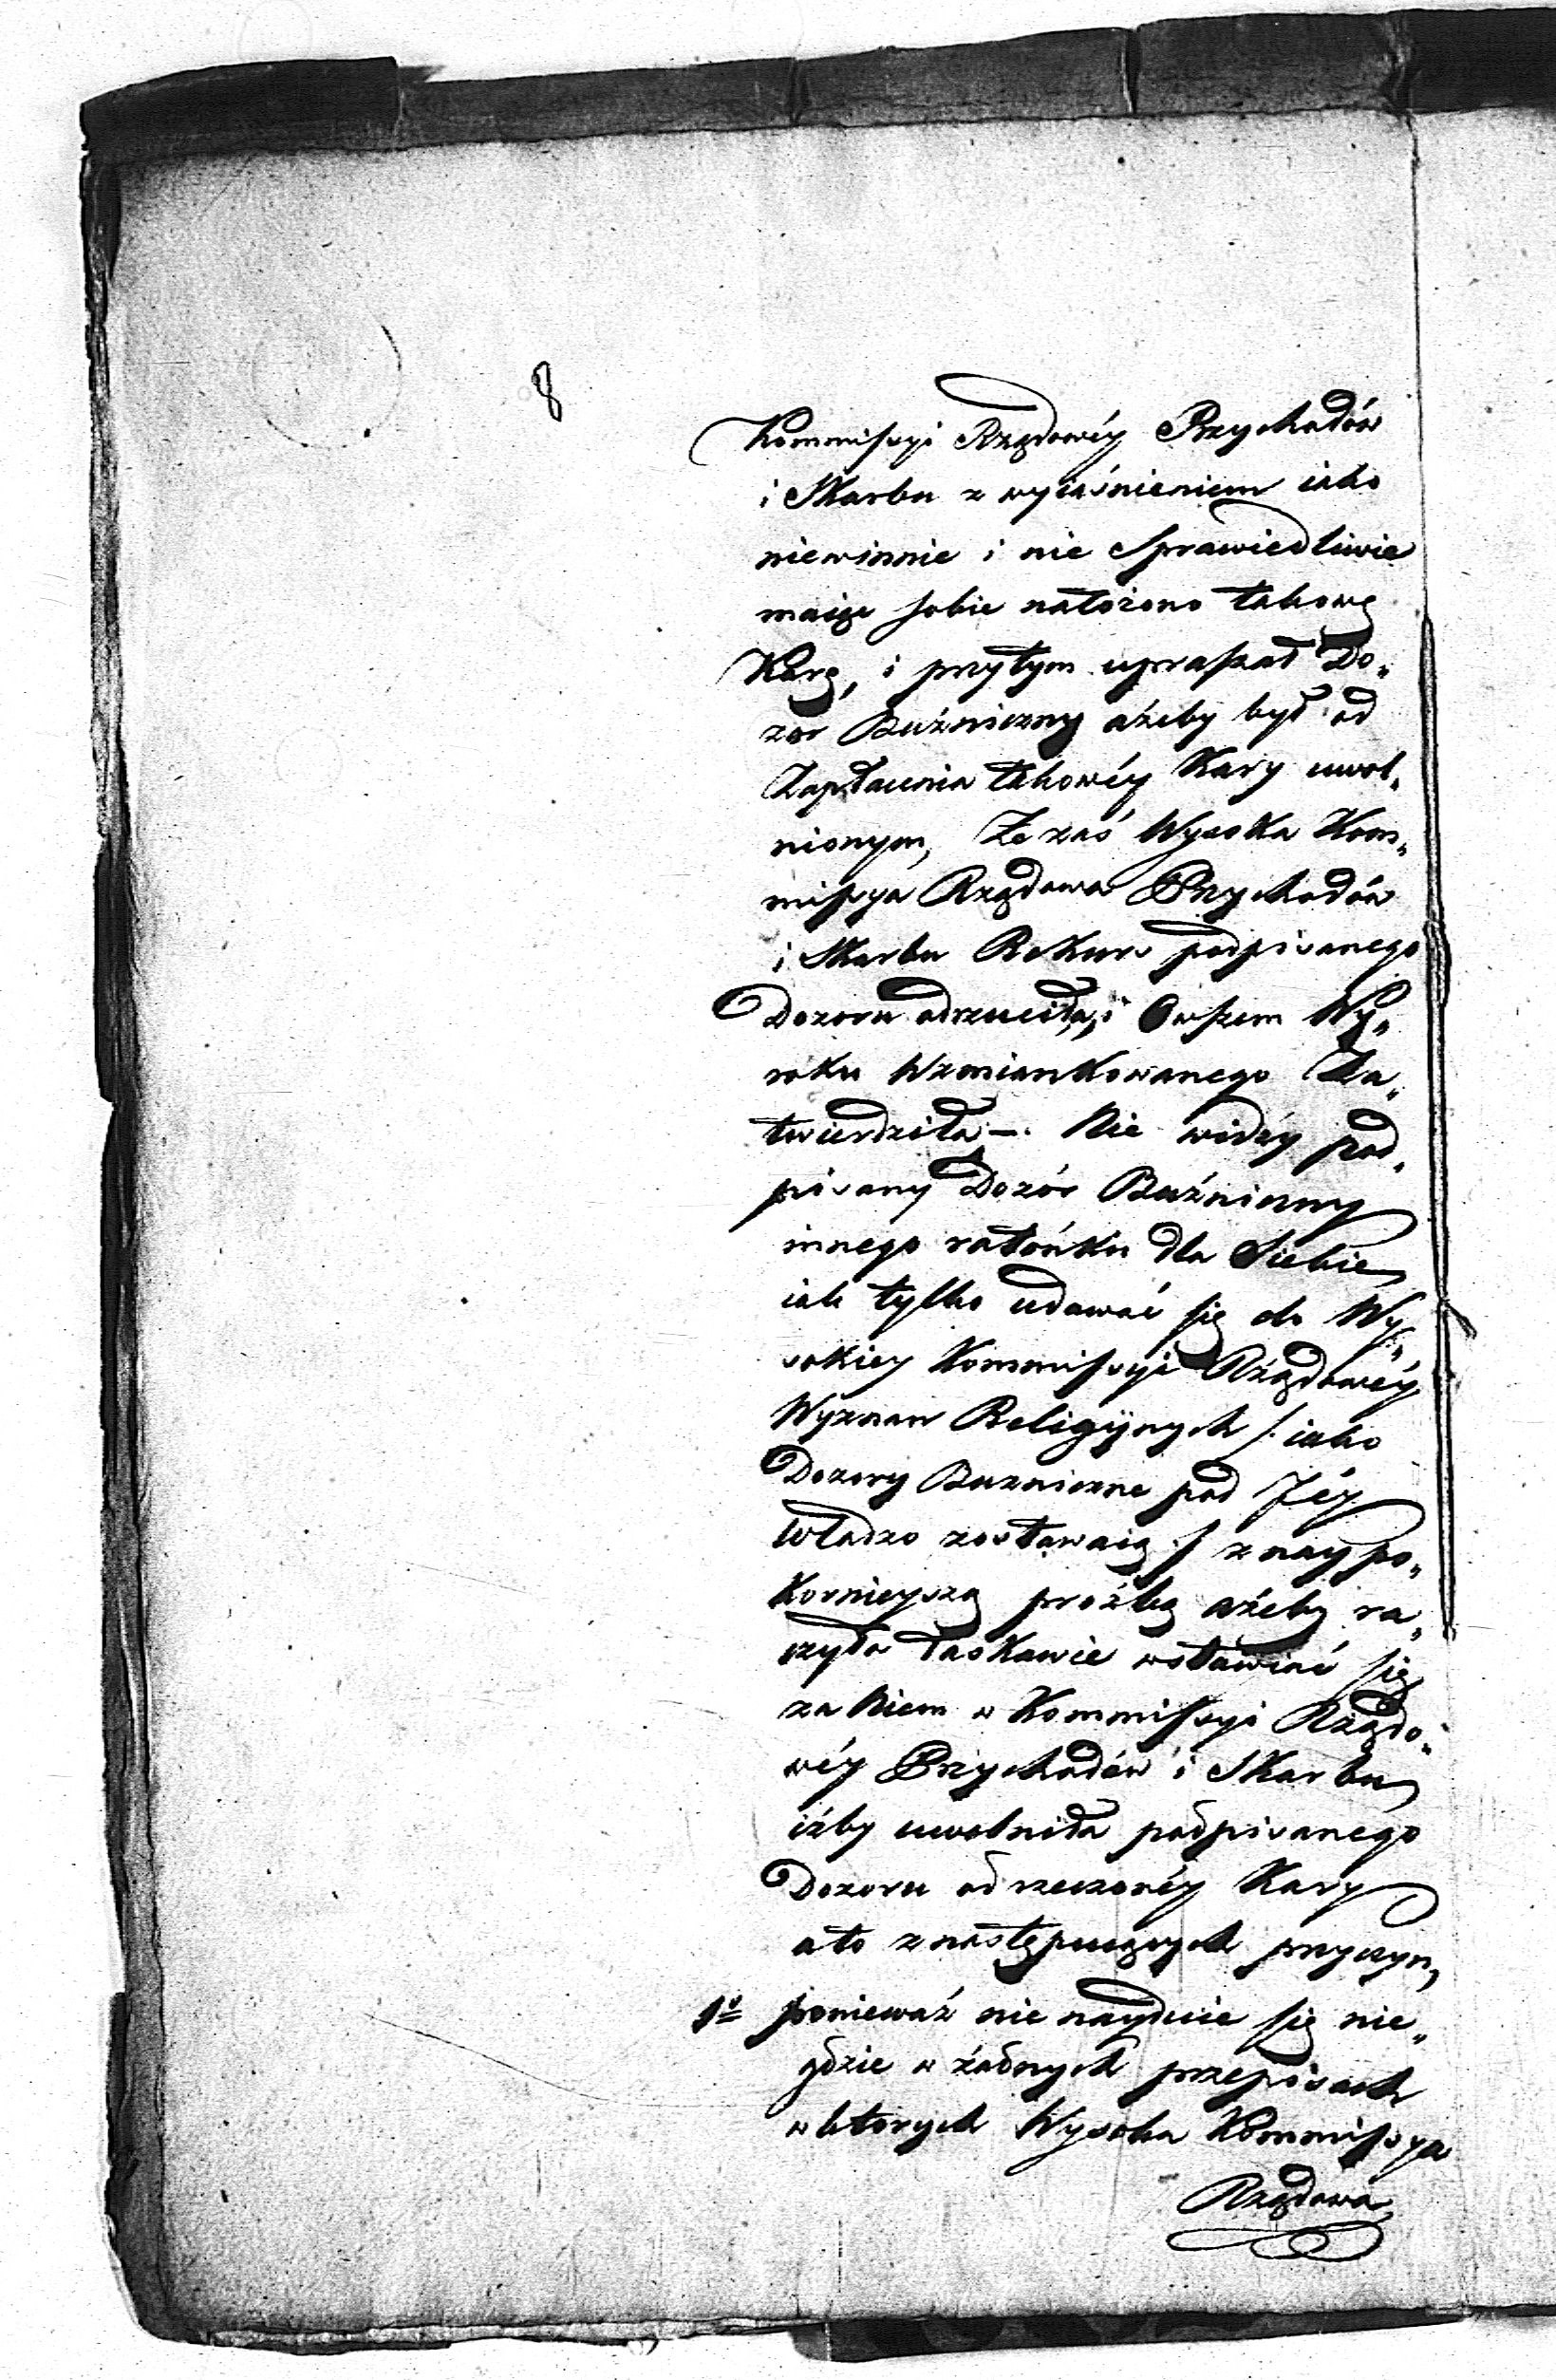 8
Kommissyi Rządowéy Przychodów
i Skarbu z wyiaśnieniem iako
niewinnie i nie Sprawiedliwie
maiąc sobie nałożono takowę
Karę, i przytym upraszał Do„
zor Bużniczny ażeby był od
Zapłacenia takowéy Kary uwol„
nionym, Że zaś Wysoka Kom„
missya Rządowa Przychodów
i Skarbu Rekurs podpisanego
Dozoru odrzuciła, i Owszem Wy„
roku Wzmiankowanego Za„
twierdziła —. Nie widzy pod„
pisany Dozór Bużniczny
innego ratónku dla Siebie
iak tylko udawać się do Wy„
sokiey Kommissyi Rządowéy
Wyznan Religiynych /: iako
Dozory Buzniczne pod Jéy
Władzo zostawaią :/ z nay po„
Kornieyszą proźbą ażeby ra„
czyła łaskawie wstawiać się
za Niem w Kommissyi Rządo„
wéy Przychodów i Skarbu
iżby uwolniła podpisanego
Dozoru od rzeczonéy Kary
a to z następuiących przyczyn,
1º ponieważ nie nayduie się nie„
gdzie w żadnych przepisach
w ktorych Wysoka Kommissya
Rządowa